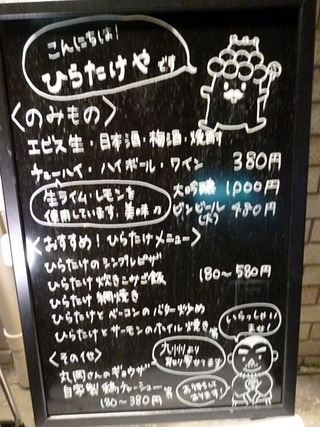 こんにちは!
ひらたけや です
〈のみもの〉
エビス生・日本酒・梅酒・焼酎
チューハイ・ハイボール・ワイン 380円
生ライム・レモンを
使用しています。美味
大吟醸 1,000円
ビンビール(大) 480円
〈おすすめ! ひらたけメニュー〉
ひらたけの シンプルピザ
ひらたけ 炊きこみご飯 180〜580円
ひらたけ 網焼き
ひらたけとベーコンのバター炒め
ひらたけとサーモンのホイル焼き 等
いらっしゃい
ませ!
〈その他〉
丸岡さんのギョウザ
自家製 鶏チャーシュー 等
180〜380円
九州より
取り寄せてます
お待ちして
おります!